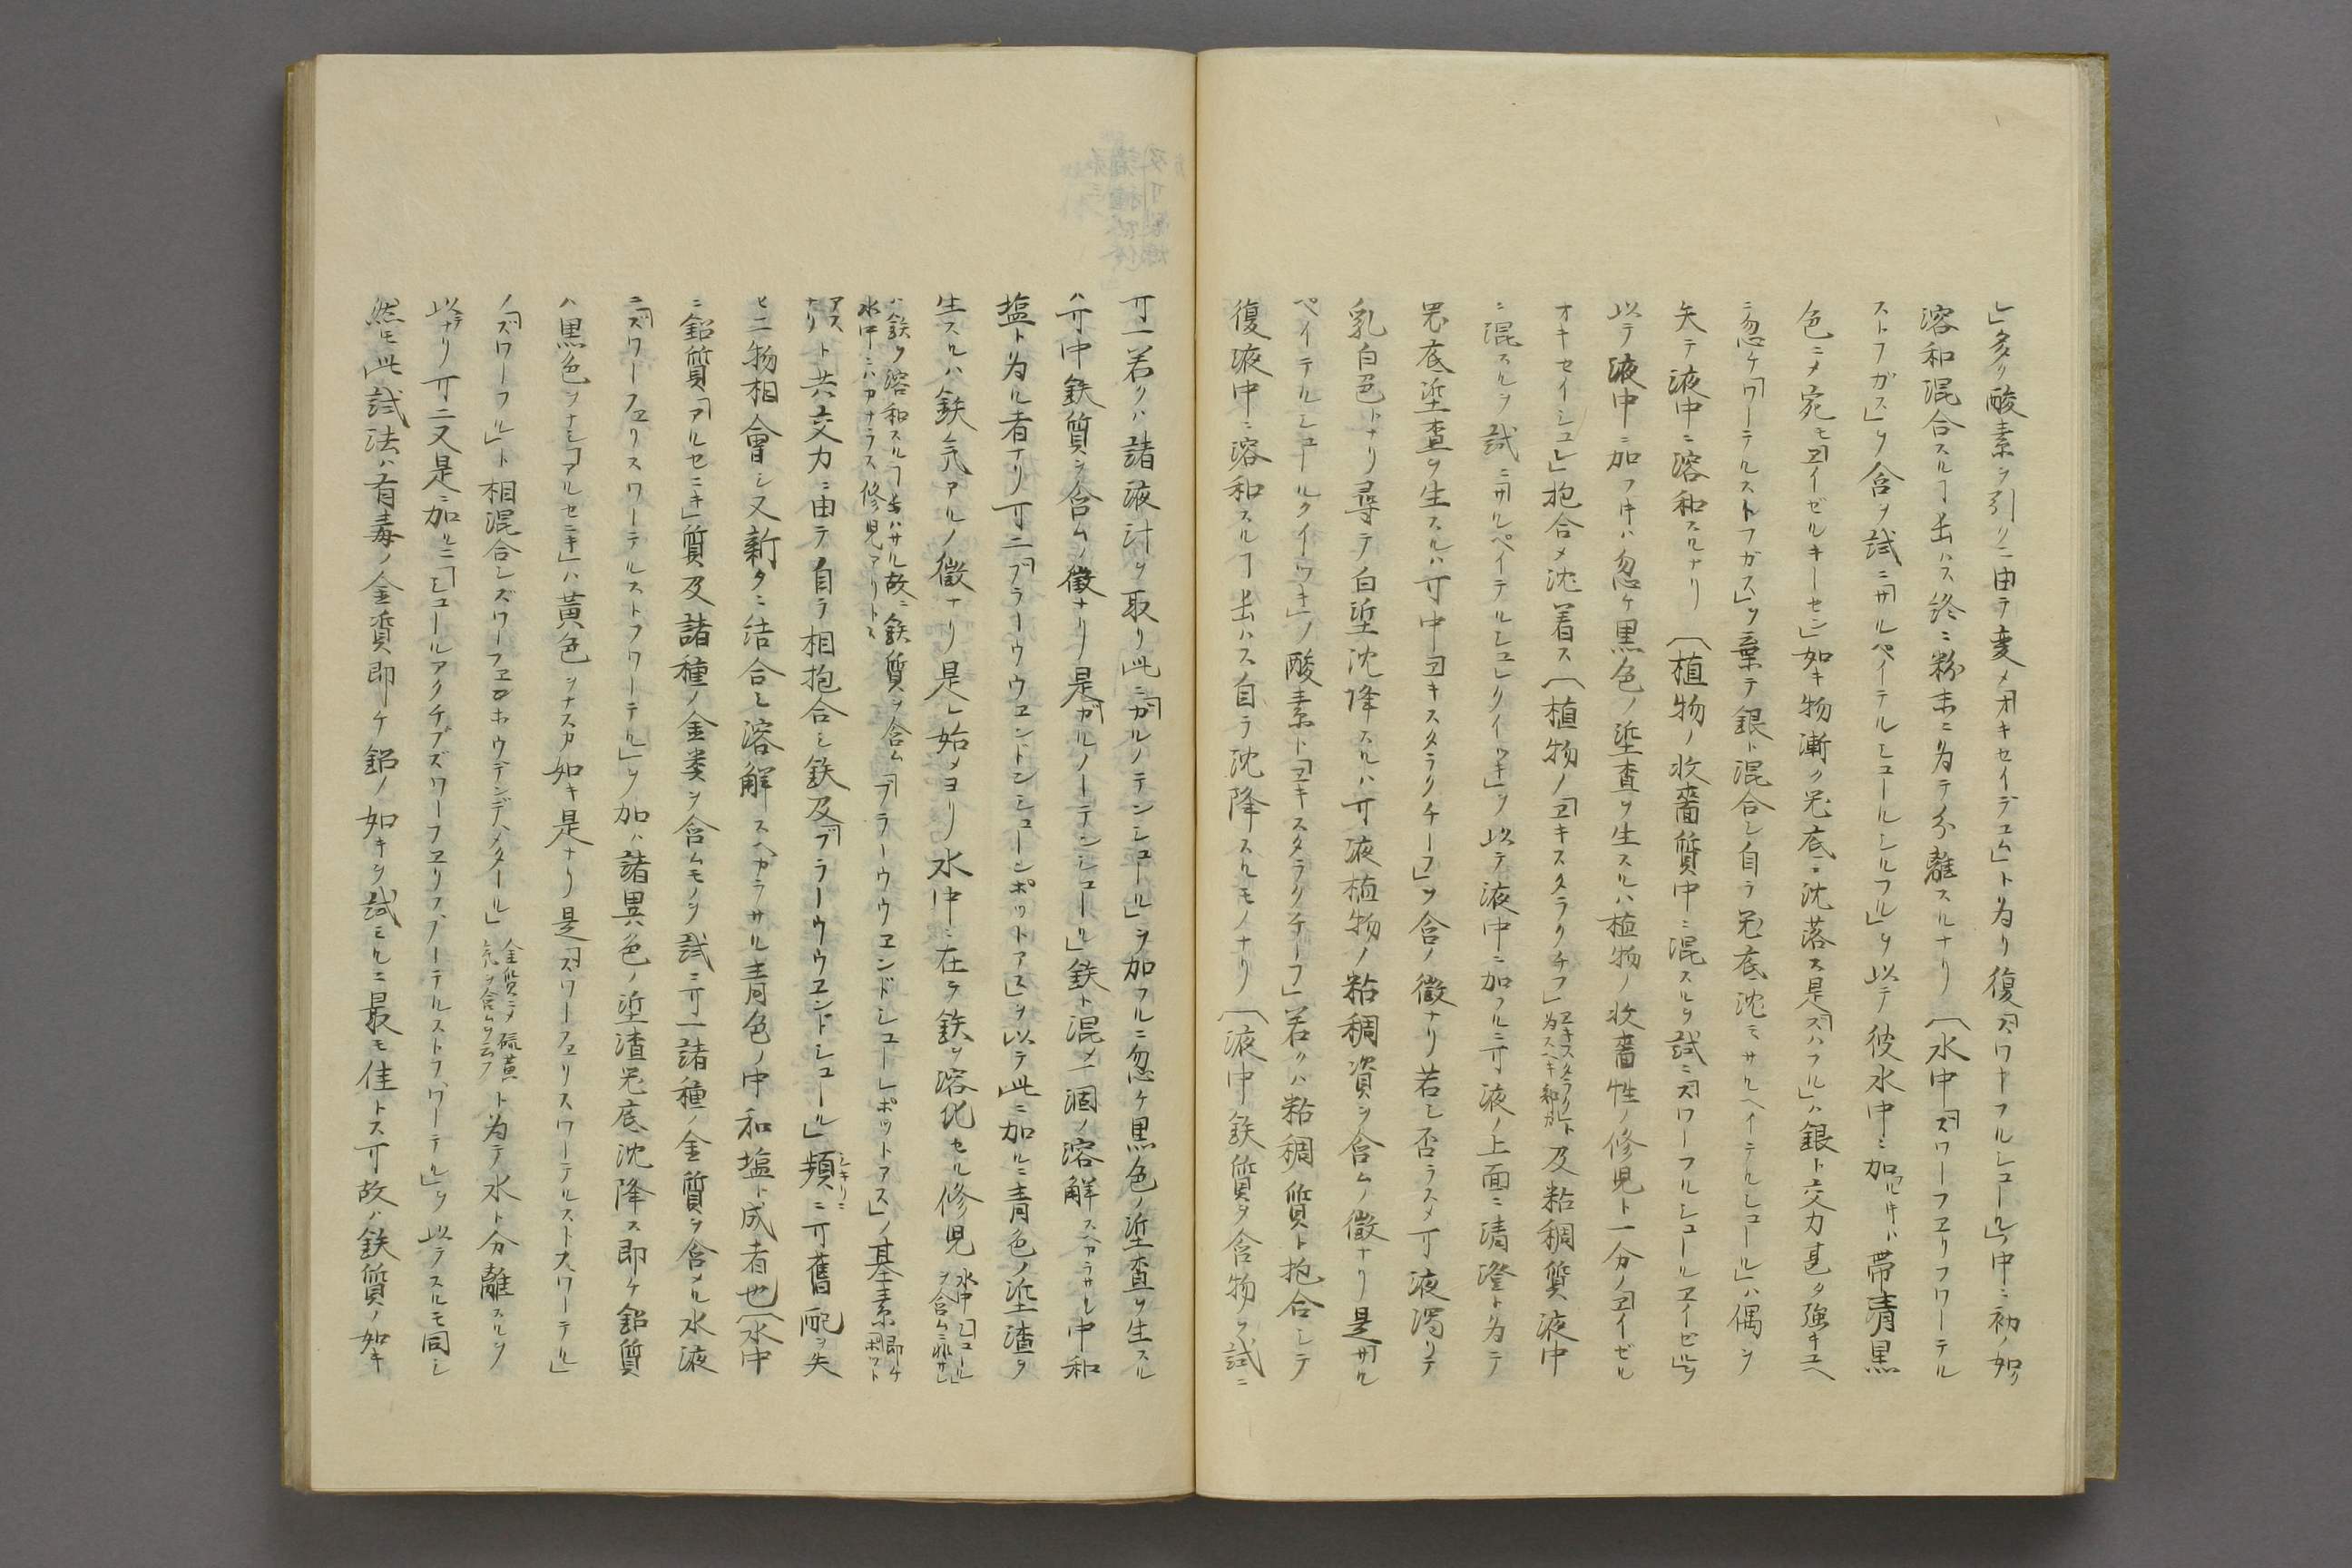 」多ク酸素ヲ引クニ由テ変メ「オキセイデュム」ト为リ復「ズワーフルシュール」中ニ初ノ如ク
溶和混合スルヿ能ハス終ニ粉末ニ为テ分離スルナリ〔水中「ズワーフヱリフワーテル
ストフガス」ヲ含ヲ試ニ「サルペイテルシュールシルフル」ヲ以テ彼水中ニ加フルキハ帯青黒
色ニメ宛モ「ヱイゼルキーセン」如キ物漸ク兠底ニ沈落ス是「ズハフル」ハ銀ト交力甚タ強キユヘ
ニ忽ケ「ワーテルストフガス」ヲ棄テ銀ト混合シ自ラ兠底ニ沈ミサルヘイテルシュール」ハ偶ヲ
失テ液中ニ溶和スルナリ 〔植物ノ收斂質中ニ混スルヲ試ニ「ズワーフルシュールヱイゼル」ヲ
以テ液中ニ加フキハ忽ケ黒色ノ埿査ヲ生スルハ植物ノ收斂性ノ修児ト一分ノ「ヱイゼル
オキセイシュレ」抱合メ沈着ス〔植物ノ「ヱキスタラクチフ」ヱキスタラクト为スヘキ和カ及粘稠質液中
ニ混スルヲ試ニ「サルペイテルシュレクイッキ」ヲ以テ液中ニ加フルニ寸液ノ上面ニ清澄ト为テ
兠底埿査ヲ生スルハ寸中「ヱキスタラクチーフ」ヲ含ノ徴ナリ若シ否ラスメ寸液濁リテ
乳白色トナリ尋テ白埿沈降スルハ寸液植物ノ粘稠資ヲ含ムノ徴ナリ是「サル
ペイテルシュールクイッキ」ノ酸素ト「ヱキスタラクチーフ」若クハ粘稠質ト抱合シテ
復液中ニ溶和スルヿ能ハス自ラ沈降スルモノナリ〔液中鉄質ヲ含物ヲ試ニ
寸一若クハ諸液汁ヲ取リ此ニ「ガルノテンシュール」ヲ加フルニ忽ケ黒色ノ埿査ヲ生スル
ハ寸中鉄質ヲ含ムノ徴ナリ是「ガルノーテンシュール」鉄ト混メ一個ノ溶解スヘカラサル中和
塩ト为ル者ナリ寸二「ブラーウウヱンドシシューンポットアス」ヲ以テ此ニ加ルニ青色ノ埿渣ヲ
生スルハ鉄気アルノ徴ナリ是レ始メヨリ水中ニ在テ鉄ヲ溶化セル修児水中「シュール」ヲ含ムニ非サレ
ハ鉄ヲ溶和スルヿ能ハサル故ニ鉄質ヲ含ム水中ニハカナラス修児アリトス「ブラーウウヱンドシューレポットアス」ノ基素即ケ「ポツト
アスナリト共交力ニ由テ自ラ相抱合シ鉄及「ブラーウウヱンドシュール」頻シキリニニ寸舊配ヲ失
ヒ二物相會シ又新タニ結合シ溶解スヘカラサル青色ノ中和塩ト成者也〔水中
ニ鉛質「アルセニキ」質及諸種ノ金类ヲ含ムモノヲ試ニ寸一諸種ノ金質ヲ含メル水液
ニ「ズワーフヱリスワーテルストフワーテル」ヲ加ハ諸異色ノ埿渣兠底沈降ス即ケ鉛質
ハ黒色ヲナシ「アルセニキ」ハ黄色ヲナスカ如キ是ナリ是「ズワーフヱリスワーテルストスワーテル」
ノ「ズワーフル」ト相混合シズワーフヱロホウデンデハメタール」金質ニメ硫黄気ヲ含ムヲ云フト为テ水ト分離スルヲ
以テナリ寸二又是ニ加ルニ「シュールアクチブズワーフヱリフ、ブーテルストフ、ワーテル」ヲ以テスルモ同シ
然ヒ此試法ハ有毒ノ金質即ケ鉛ノ如キヲ試ミルニ最モ佳トス寸故ハ鉄質ノ如キ